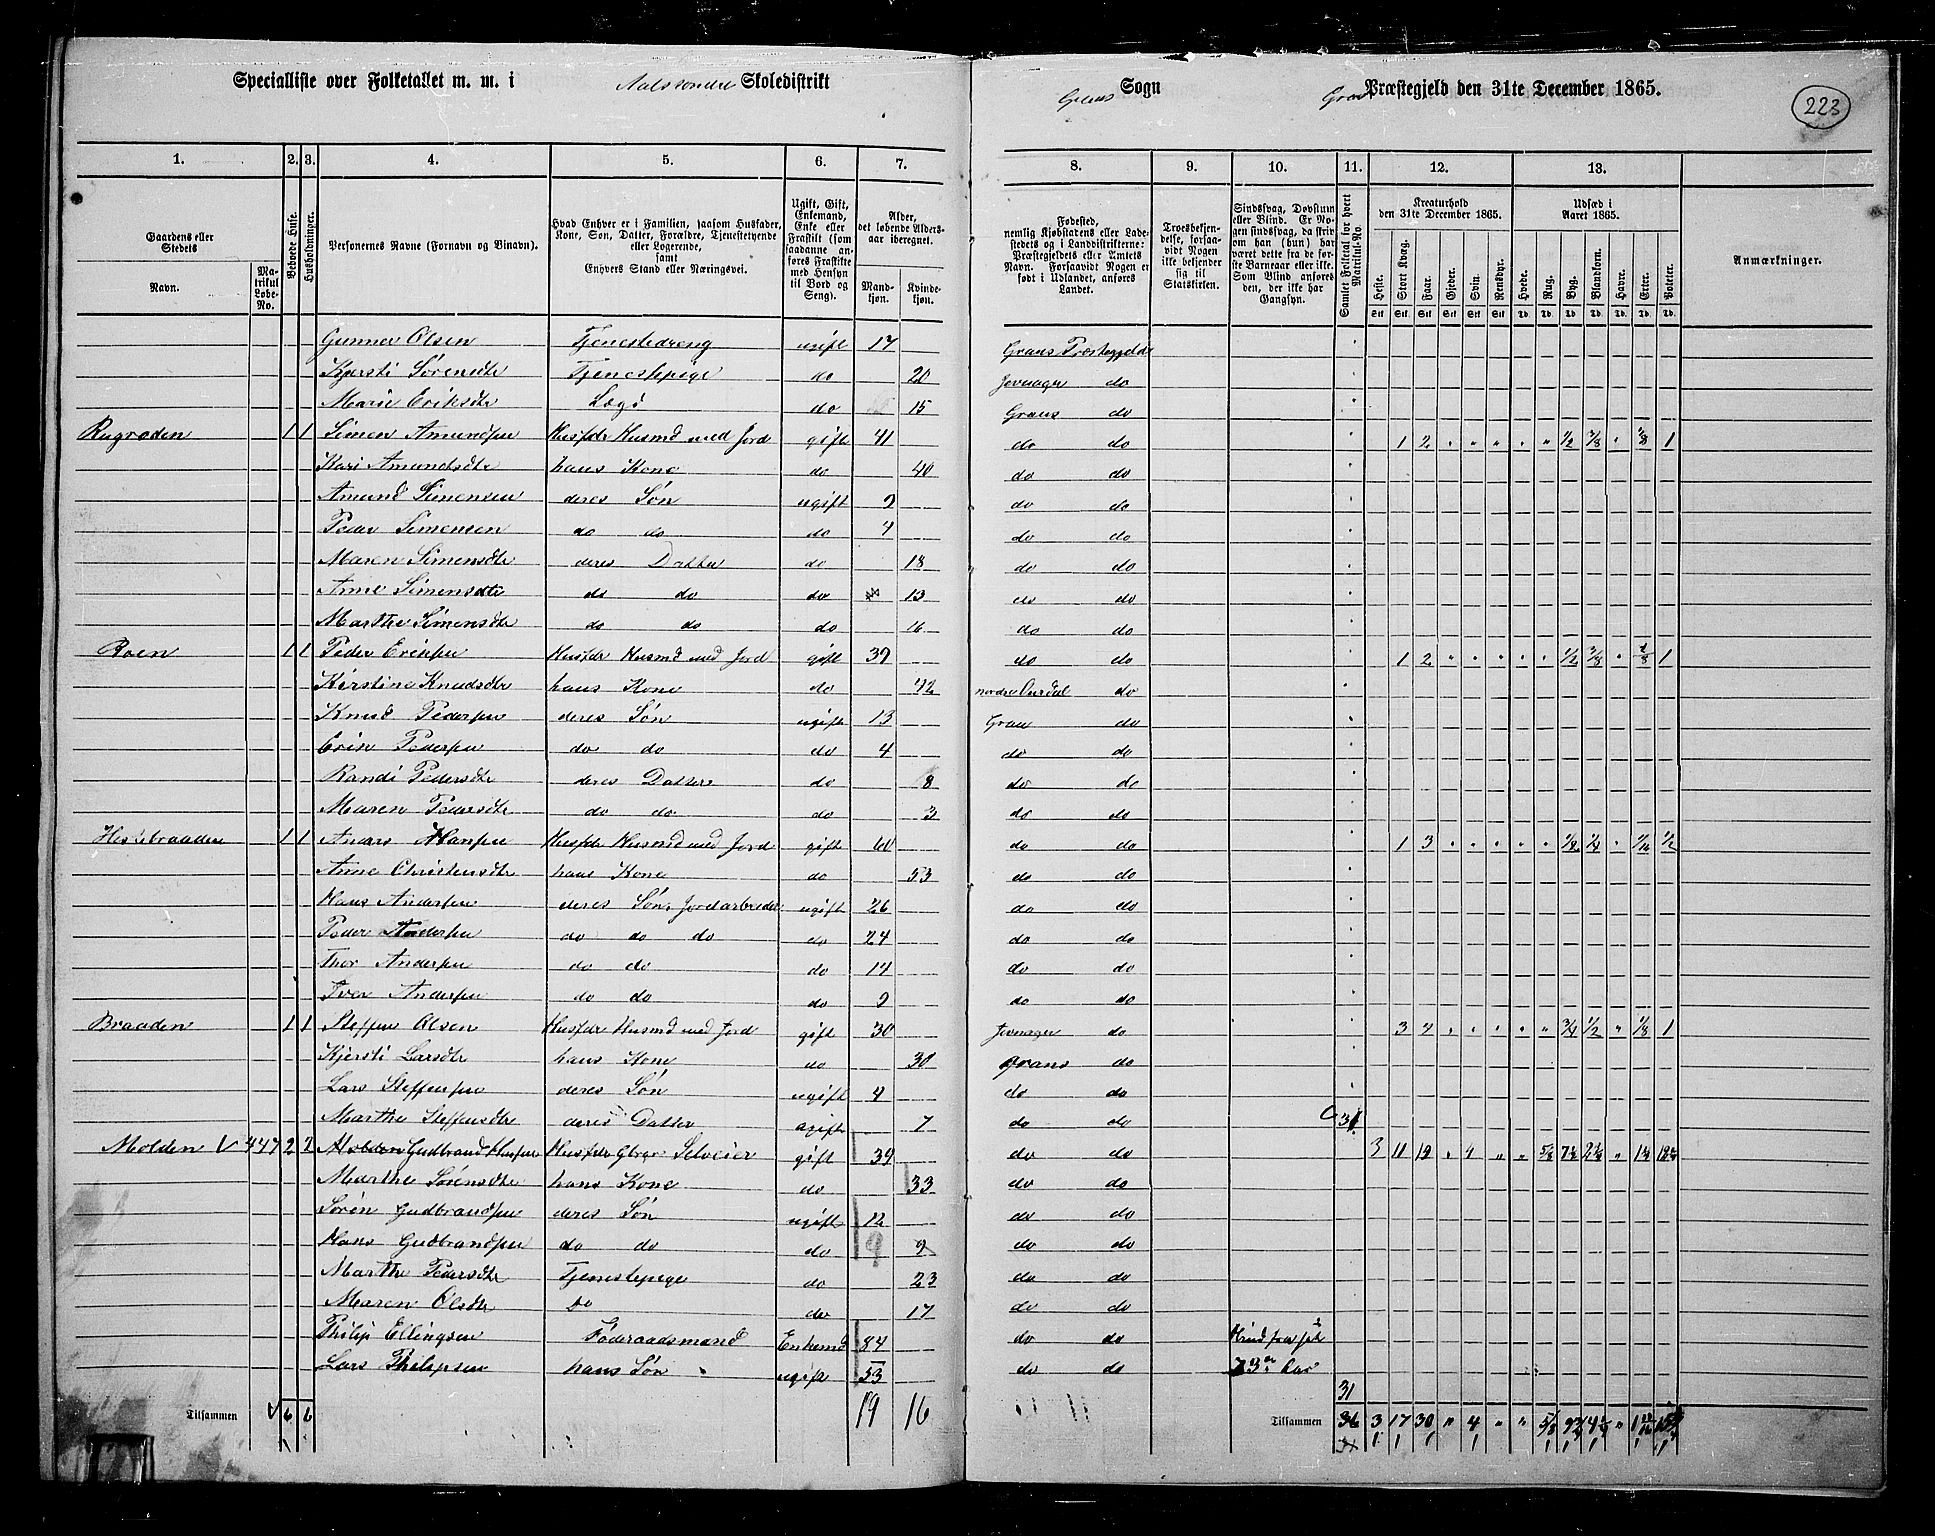 Specialliste over Folketallet m. m. i Aalssondre Skoledistrikt Grans Sogn Gran Præstegjeld den 31te December 1865.
223
1. 2. 3. 4. 5. 6. 7. 8. 9. 10. 11. 12. 13.
Gaardens eller Stedets
Navn.
Matrikul Løbe-No.
Beboede Huse.
Husholdninger.
Personernes Navne (Fornavn og Binavn).
Hvad Enhver er i Familien, saasom Husfader, Kone, Søn, Datter, Forældre, Tjenestetyende eller Logerende, samt Enhvers Stand eller Næringsvei.
Ugift, Gift, Enkemand, Enke eller Fraskilt (som saadanne anføres Fraskilte med Hensyn til Bord og Seng).
Alder, det løbende Aldersaar iberegnet.
Mandkjøn. Kvindekjøn.
Fødested, nemlig Kjøbstadens eller Ladestedets og i Landdistrikterne: Præstegjeldets eller Amtets Navn. Forsaavidt Nogen er født i Udlandet, anføres Landet.
Troesbekjendelse, forsaavidt Nogen ikke bekjender sig til Statskirken.
Sindssvag, Døvstum eller Blind. Er Nogen sindssvag, da skriv om han (hun) har været dette fra de første Barneaar eller ikke. Som Blind anføres den, der ikke har Gangsyn.
Samlet Folketal for hvert Matrikul-No.
Kreaturhold den 31te December 1865.
Heste. Stort Kvæg. Faar. Gjeder. Svin. Rensdyr.
Udsæd i Aaret 1865.
Hvede. Rug. Byg. Blandkorn. Havre. Erter. Poteter.
Anmærkninger.
Gunner Olsen Tjenestedreng ugift 17 Grans Præstegjeld
Kjersti Sørensdtr Tjenestepige do 20 Jevnager do
Marie Eriksdtr Lægd do 15 Grans do
Rugroden 1 1 Simen Amundsen Husfdr Husmd med Jord gift 41 do do 1 2 " " " " " 1/2 3/8 " 1/8 1
Kari Amundsdtr hans Kone do 40 do do
Amund Simensen deres Søn ugift 9 do do
Peder Simensen do do do 4 do do
Maren Simensdtr deres Datter do 18 do do
Anne Simensdtr do do do 13 do do
Marthe Simensdtr do do do 16 do do
Roen 1 1 Peder Eriksen Husfdr Husmd med Jord gift 39 do do 1 2 " " " " " 1/2 3/8 " 1/8 1
Kirstine Knudsdtr hans Kone do 42 nordre Aurdal do
Knud Pedersen deres Søn ugift 13 Gran do
Erik Pedersen do do do 4 do do
Randi Pedersdtr deres Datter do 8 do do
Maren Pedersdtr do do do 3 do do
Hestebraaden 1 1 Anders Hansen Husfdr Husmd med Jord gift 60 do do 1 3 " " " " " 1/2 1/4 " 1/16 1/2
Anne Christensdtr hans Kone do 53 do do
Hans Andersen deres Søn, Jordarbeider ugift 26 do do
Peder Andersen do do do do 24 do do
Thor Andersen do do do 14 do do
Iver Andersen do do do 9 do do
Braaden 1 1 Steffen Olsen Husfdr Husmd med Jord gift 30 Jevnager do 3 4 " " " " " 3/4 1/2 " 1/8 1
Kjersti Larsdtr hans Kone do 30 Grans do
Lars Steffensen deres Søn ugift 4 do do
Marthe Steffensdtr deres Datter ugift 7 do do 31
Molden 447 2 2 Gudbrand Hansen Husfdr Gbrgr Selveier gift 39 do do 3 11 18 " 4 " " 5/8
Marthe Sørensdtr hans Kone do 33 do do
Søren Gudbrandsen deres Søn ugift 12 do do
Hans Gudbrandsen do do do 9 9 do do
Marthe Pedersdtr Tjenestepige do 23 do do
Maren Olsdtr Do do 17 do do
Philip Ellingsen Føderaadsmand Enkemd 84 do do Blind fra sit
Lars Philipsen hans Søn ugift 53 do do 73de Aar
31
Tilsammen 6 6 19 16 Tilsammen 36 3 17 30 " 4 " " 5/8